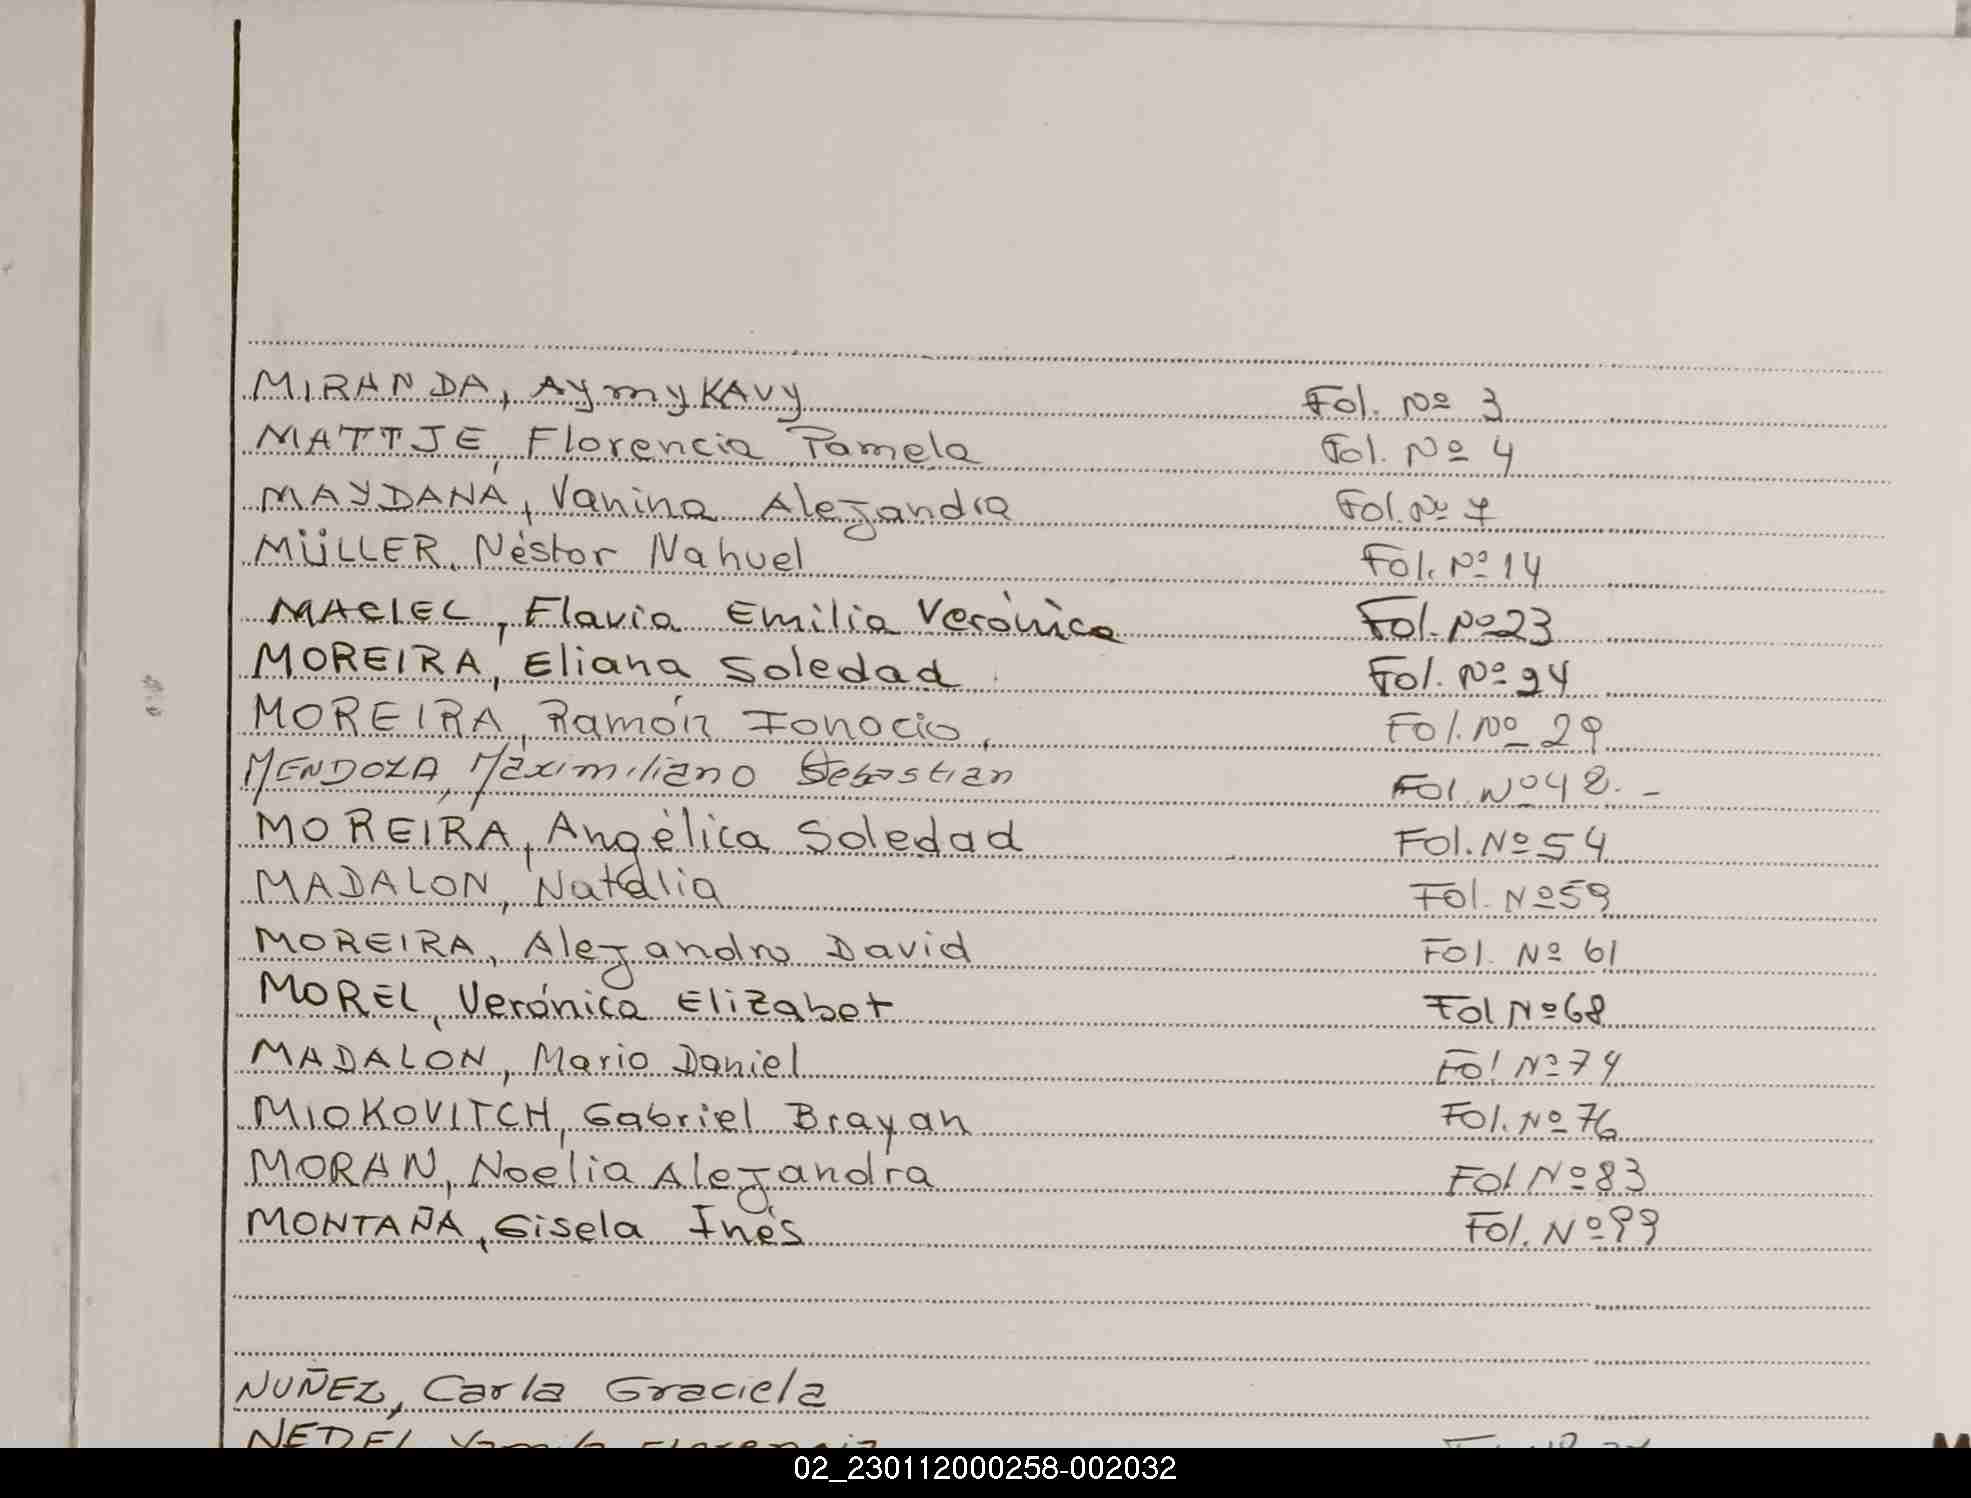 MIRANDA, Aymy KAVY Fol. Nº 3
MATTJE, Florencia Pamela Fol. Nº 4
MAYDANA, Vanina Alejandra Fol. Nº 7
MÜLLER, Néstor Nahuel Fol. Nº 14
MACIEL, Flavia Emilia Verónica Fol. Nº 23
MOREIRA, Eliana Soledad Fol. Nº 24
MOREIRA, Ramón Fol. Nº 29
MENDOZA, Maximiliano Sebastian Fol. Nº 48.-
MOREIRA, Angélica Soledad Fol. Nº 54
MADALON, Natalia Fol. Nº 59
MOREIRA, Alejandro David Fol. Nº 61
MOREL, Verónica Elizabet Fol Nº 68
MADALON, Mario Daniel Fol Nº 74
MIOKOVITCH, Gabriel Brayan Fol. Nº 76
MORAN, Noelia Alejandra Fol Nº 83
MONTAÑA, Gisela Inés Fol. Nº 99
NUÑEZ, Carla Graciela
02_230112000258-002032